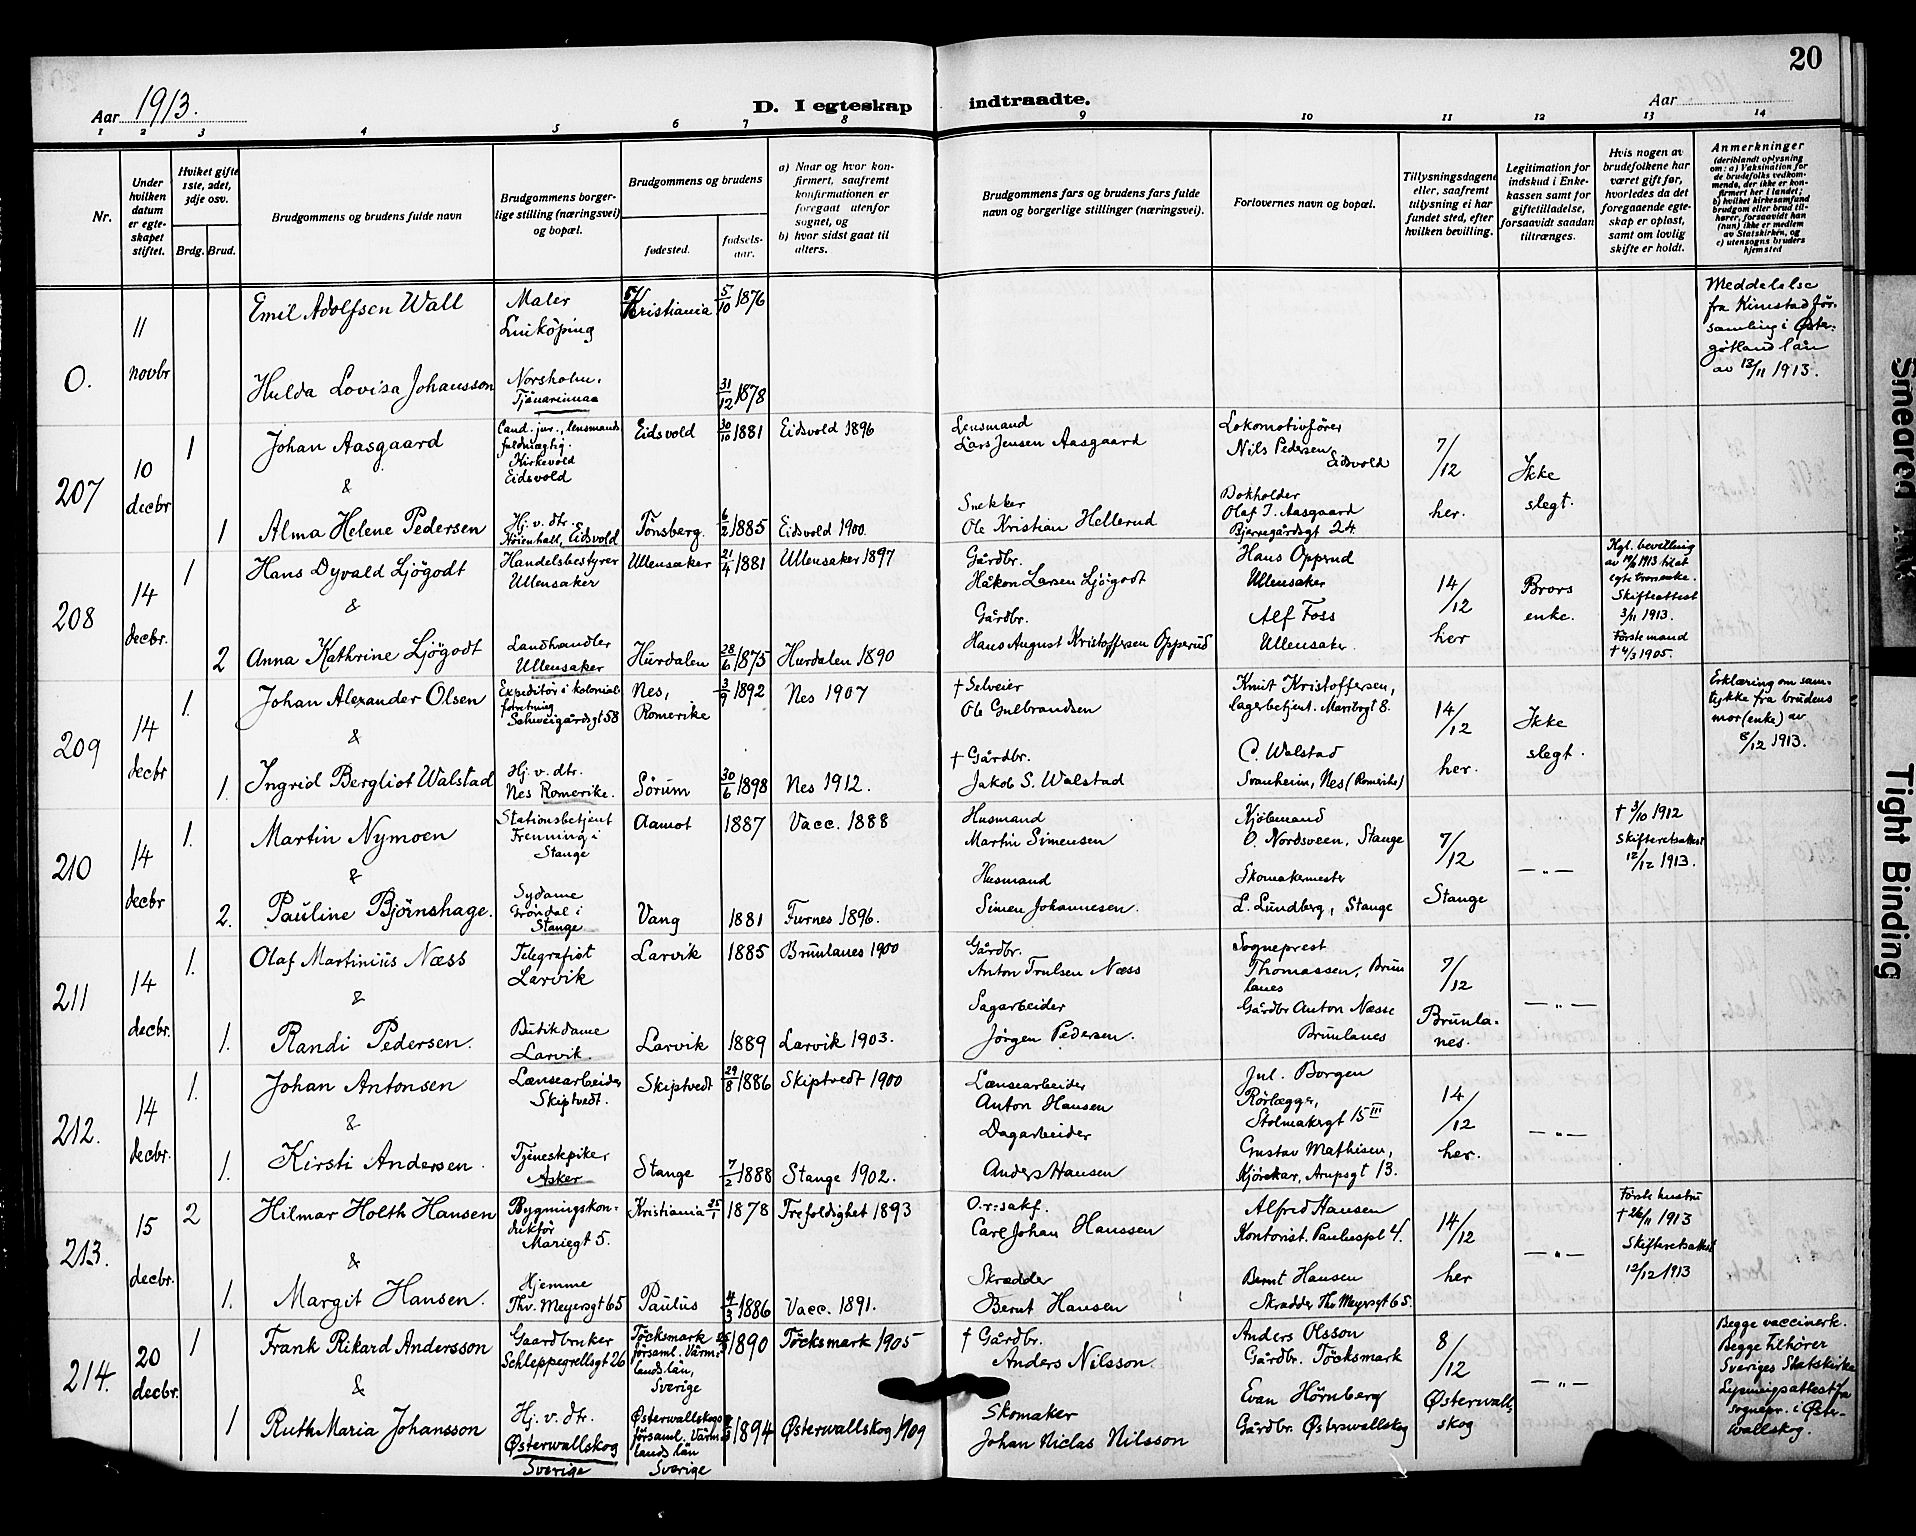 20
Aar 1913.
D. I egteskap indtraadte.
Aar
1 2 3 4 5 6 7 8 9 10 11 12 13 14
Nr.
Under hvilken datum er egteskapet stiftet.
Hviket gifte 1ste, 2det, 3dje osv.
Brdg. Brud.
Brudgommens og brudens fulde navn
Brudgommens borgerlige stilling (næringsvei) og bopæl.
Brudgommens og brudens
fødested.
fødselsaar.
a) Naar og hvor konfirmert, saafremt konfirmationen er foregaat utenfor sognet, og
b) hvor sidst gaat til alters.
Brudgommens fars og brudens fars fulde navn og borgerlige stillinger (næringsvei).
Forlovernes navn og bopæl.
Tillysningsdagene eller, saafremt tillysning ei har fundet sted, efter hvilken bevilling.
Legitimation for indskud i Enkekassen samt for giftetilladelse, forsaavidt saadan tiltrænges.
Hvis nogen av brudefolkene har været gift før, hvorledes da det foregaaende egteskap er opløst, samt om lovlig skifte er holdt.
Anmerkninger
(deriblandt oplysning om: a) Vaksination for de brudefolks vedkommende, der ikke er konfirmert her i landet; b) hvilket kirkesamfund brudgom eller brud tilhører, forsaavidt han (hun) ikke er medlem av Statskirken, og c) utensogns bruders hjemsted
0.
11 novbr
Emil Adolfsen Wall
Maler
Linköping
Kristiania
5/10 1876
Meddelelse
fra Kimstad för-
samling i Øster-
götland län
av 12/11 1913.
Hulda Lovisa Johansson
Norsholm.
Tjänarinnaa
31/12 1878
207
10 decbr
1
Johan Aasgaard
Cand. jur., lensmands
fuldmægtig.
Kirkevold
Eidsvold
Eidsvold
30/10 1881
Eidsvold 1896
Lensmand
Lars Jensen Aasgaard
Lokomotivfører
Nils Pedersen
Eidsvold
7/12
her.
Ikke
slegt.
&
1
Alma Helene Pedersen
Hj. v. dtr.
Høienhall, Eidsvold
Tønsberg.
6/2 1885
Eidsvold 1900.
Snekker
Ole Kristian Hellerud
Bokholder
Olaf J. Aasgaard
Bjerregårdsgt 24.
208
14 decbr.
1
Hans Dyvald Ljögodt
Handelsbestyrer
Ullensaker
Ullensaker
21/4 1881
Ullensaker 1897
Gårdbr.
Håkon Larsen Ljögodt
Hans Opperud
Ullensaker
14/12
her
Brors
enke.
Kgl. bevilling
av 19/9 1913 til at
egte brors enke.
Skifteattest
3/11 1913.
Første mand
† 4/3 1905.
&
2
Anna Kathrine Ljögodt
Landhandler
Ullensaker
Hurdalen
28/6 1875
Hurdalen 1890
Gårdbr.
Hans August Kristoffersen Opperud
Alf Foss
Ullensaker.
209
14 decbr
1.
Johan Alexander Olsen
Expeditør i kolonial-
forretning
Schweigårdsgt 58
Nes,
Romerike
3/9 1892
Nes 1907
† Selveier
Ole Gulbrandsen
Knut Kristoffersen,
Lagerbetjent. Maribogt 8.
14/12
her.
Ikke
slegt.
Erklæring om sam-
tykke fra brudens
mor (enke) av
8/12 1913.
&
1.
Ingrid Bergliot Walstad
Hj. v. dtr.
Nes Romerike.
Sörum
30/6 1898
Nes 1912.
† Gårdbr.
Jakob S. Walstad
C. Walstad
Svanheim, Nes (Romerike)
210
14 decbr
1.
Martin Nymoen
Stationsbetjent
Frenning i
Stange
Aamot
1887
Vacc. 1888
Husmand
Martin Simensen
Kjöbmand
O. Nordsveen, Stange
7/12
Stange
— „ —
† 3/10 1912
Skifteretsattest
12/12 1913.
&
2.
Pauline Björnshage.
Sydame
Gröndal i
Stange
Vang
1881
Furnes 1896.
Husmand
Simen Johannesen.
Skomakermester
L. Lundberg, Stange
211
14 decbr.
1.
Olaf Martinius Næss
Telegrafist
Larvik
Larvik
1885
Brunlanes 1900
Gårdbr.
Anton Trulsen Næss
Sogneprest
Thomassen, Brun
lanes
7/12
Brunla-
nes.
— „ —
&
1.
Randi Pedersen.
Butikdame
Larvik.
Larvik
1889
Larvik 1903.
Sagarbeider
Jörgen Pedersen.
Gårdbr Anton Næsse
Brunlanes
212.
14 decbr.
1.
Johan Antonsen
Lænsearbeider
Skiptvedt.
Skiptvedt
29/8 1886
Skiptvedt 1900
Lænsearbeider
Anton Hansen
Jul. Borgen
Rörlægger,
Stolmakergt 15 III
14/12
her.
— „ —
&
1.
Kirsti Andersen.
Tjenestepike
Asker
Stange
7/2 1888
Stange 1902.
Dagarbeider
Anders Hansen
Gustav Mathisen,
Kjörekar, Arupsgt 13.
213.
15 decbr.
2
Hilmar Holth Hansen
Bygningskon-
duktør
Mariegt 5.
Kristiania
25/1 1878
Trefoldighet 1893
O.r.sakf.
Carl Johan Hanssen
Alfred Hansen
Kontorist. Pauluspl 4.
14/12
her
— „ —
Første hustru
† 26/11 1913
Skifteretsattest
12/12 1913
&
1.
Margit Hansen.
Hjemme
Thv. Meyersgt 65
Paulus
4/3 1886
Vacc. 1891.
Skrædder
Bernt Hansen
Bernt Hansen
Skrædder Thv Meyersgt 65.
214.
20 decbr.
1
Frank Rikard Andersson
Gaardbruker
Schleppegrellsgt 26
Töcksmark
församl. Värm-
lands län,
Sverige
1890
Töcksmark 1905
† Gårdbr.
Anders Nilsson.
Anders Olsson
Gårdbr. Töcksmark
8/12
Østerwall-
skog
— „ —
Begge vaccinerk.
Begge tilhører
Sveriges Statskirke
Lysningsattest fra
sognepr. i Øster-
wallskog.
&
1
Ruth Maria Johansson
Hj. v. dtr.
Østerwallskog
Sverige
Østerwallskogs
församl. Värm-
lands län
Sverige
1894
Østerwallskog 1909
Skomaker
Johan Niclas Nilsson
Evan Hörnberg
Gårdbr. Østerwallskog
Smeared Ink
Tight Binding